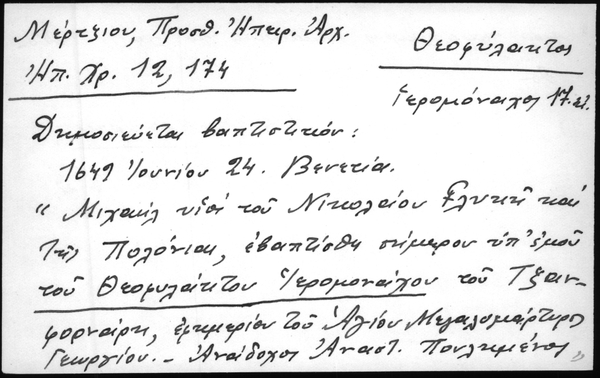 Μέρτζιου, Προσθ. Ἠπειρ. Ἀρχ.
Ἠπ. Χρ. 12, 174
Θεοφύλακτος
Ἱερομόναχος 17. αἰ.
Δημοσιεύεται βαπτιστικόν:
1649 Ἰουνίου 24. Βενετία.
"Μιχαὴλ υἱὸς τοῦ Νικολάου καὶ
τῆς Πολόνιας, ἐβαπτίσθη σήμερον ὑπ' ἐμοῦ
τοῦ Θεοφυλάκτου Ἱερομονάχου τοῦ Τζαν-
φορνάρη, ἐφημερίου τοῦ Ἁγίου Μεγαλομάρτυρος
Γεωργίου. - Ἀνάδοχος Ἀναστ. "